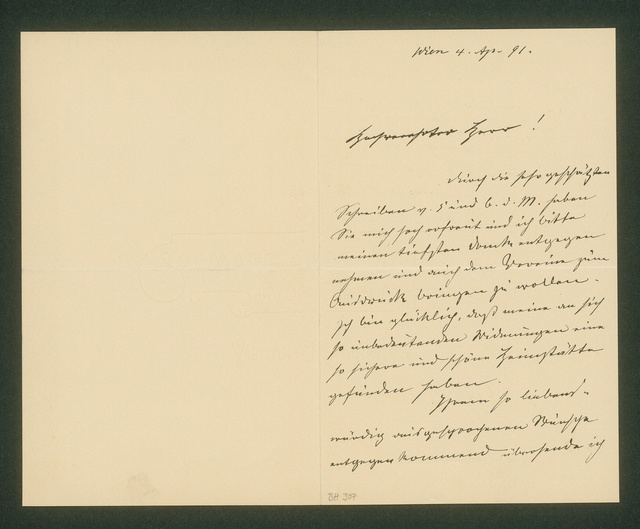 Wien 4. Ap. 91.
Hochverehrter Herr!
Durch die sehr geschätzten
Schreiben v. 5 und 6. d. M. haben
Sie mich hoch erfreut und ich bitte
meinen tiefsten Dank entgegen
nehmen und auch dem Vereine zum
Ausdruck bringen zu wollen.
Ich bin glücklich, daß meine an sich
so unbedeutenden Widmungen eine
so sichere und schöne Heimstätte
gefunden haben.
Ihrem so liebens-
würdig ausgesprochenen Wunsche
entgegenkommend übersende ich
BH 307